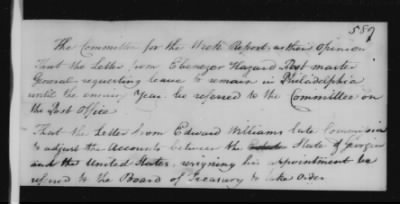 589
The Committee for the Week Report, as their Opinion
That the Letter from Ebenezer Hazard Post master
General requesting leave to remain in Philadelphia
until the ensuing Year be referred to the Committee on
the Post Office
That the Letter from Edward Williams late Commissio
to adjust the Accounts between the State of Georgia
and the United States, resigning his appointment be
referred to the Board of Treasury to take Order